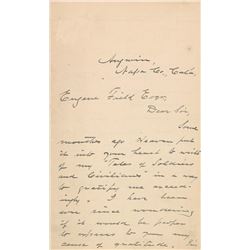 Angwin,
Napa Co., Cala.
Eugene Field Esqr,
Dear Sir,
Some
months ago Heaven put
it into your heart to write
of my "Tales of Soldiers
and Civilians" in a way
to gratify me exceed-
ingly. I have been
ever since wondering
if it would be proper
to express to you my
sense of gratitude.